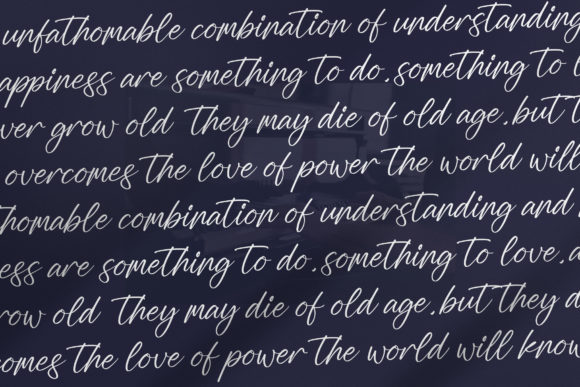 unfathomable combination of understanding
appiness are something to do. something to
ver grow old They may die of old age. but
overcomes The love of power The world will
thomable combination of understanding and
ess are something to do. something to love. a
row old They may die of old age. but They d
comes The love of power The world will know